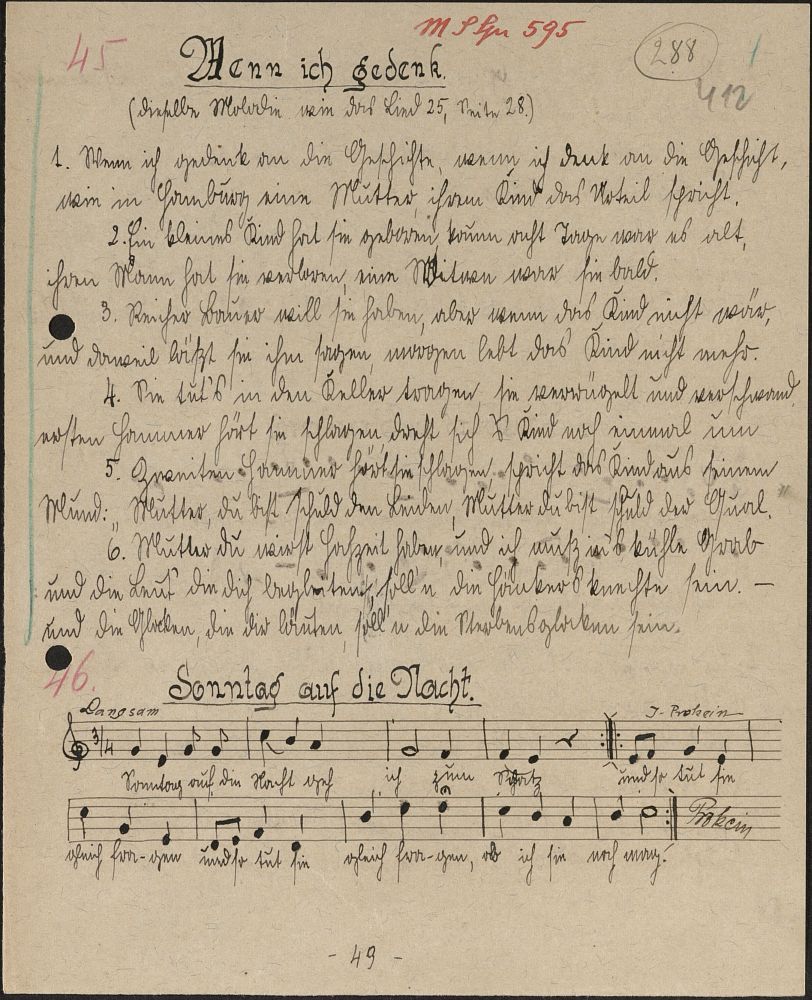 M S Spr 595
45
288
1
412
Wenn ich gedenk.
(dieselbe Melodie wie das Lied 25, Seite 28.)
1. Wenn ich gedenk an die Geschichte, wenn ich denk an die Geschicht,
wie in Hamburg eine Mutter, ihrem Kind das Urteil spricht.
2. Ein kleines Kind hat sie geboren, kaum acht Tage war es alt,
ihren Mann hat sie verloren, eine Witwe war sie bald.
3. Reicher Bauer will sie haben, aber wenn das Kind nicht wär,
und daweil läßt sie ihm sagen, morgen lebt das Kind nicht mehr.
4. Sie tut's in den Keller tragen, sie verwürgelt und verschwand,
ersten Hammer hört sie schlagen, dreht sich 's Kind noch einmal um
5. Zweiten Hammer hört sie schlagen, spricht das Kind aus seinem
Mund: „Mutter, du bist schuld den Leiden, Mutter du bist schuld der Qual."
6. Mutter du wirst Hochzeit haben, und ich muß in's kühle Grab
und die Leut' die dich begleiten, soll'n die Hänkersknechte sein. —
und die Glocken, die dir läuten, soll'n die Sterbensglocken sein.
46.
Sonntag auf die Nacht.
Langsam
J. Prokein
3/4
Sonntag auf die Nacht geh ich zum Schatz und so tut sie
Prokein
gleich fra-gen und so tut sie gleich fra-gen, ob ich sie noch mag.
- 49 -